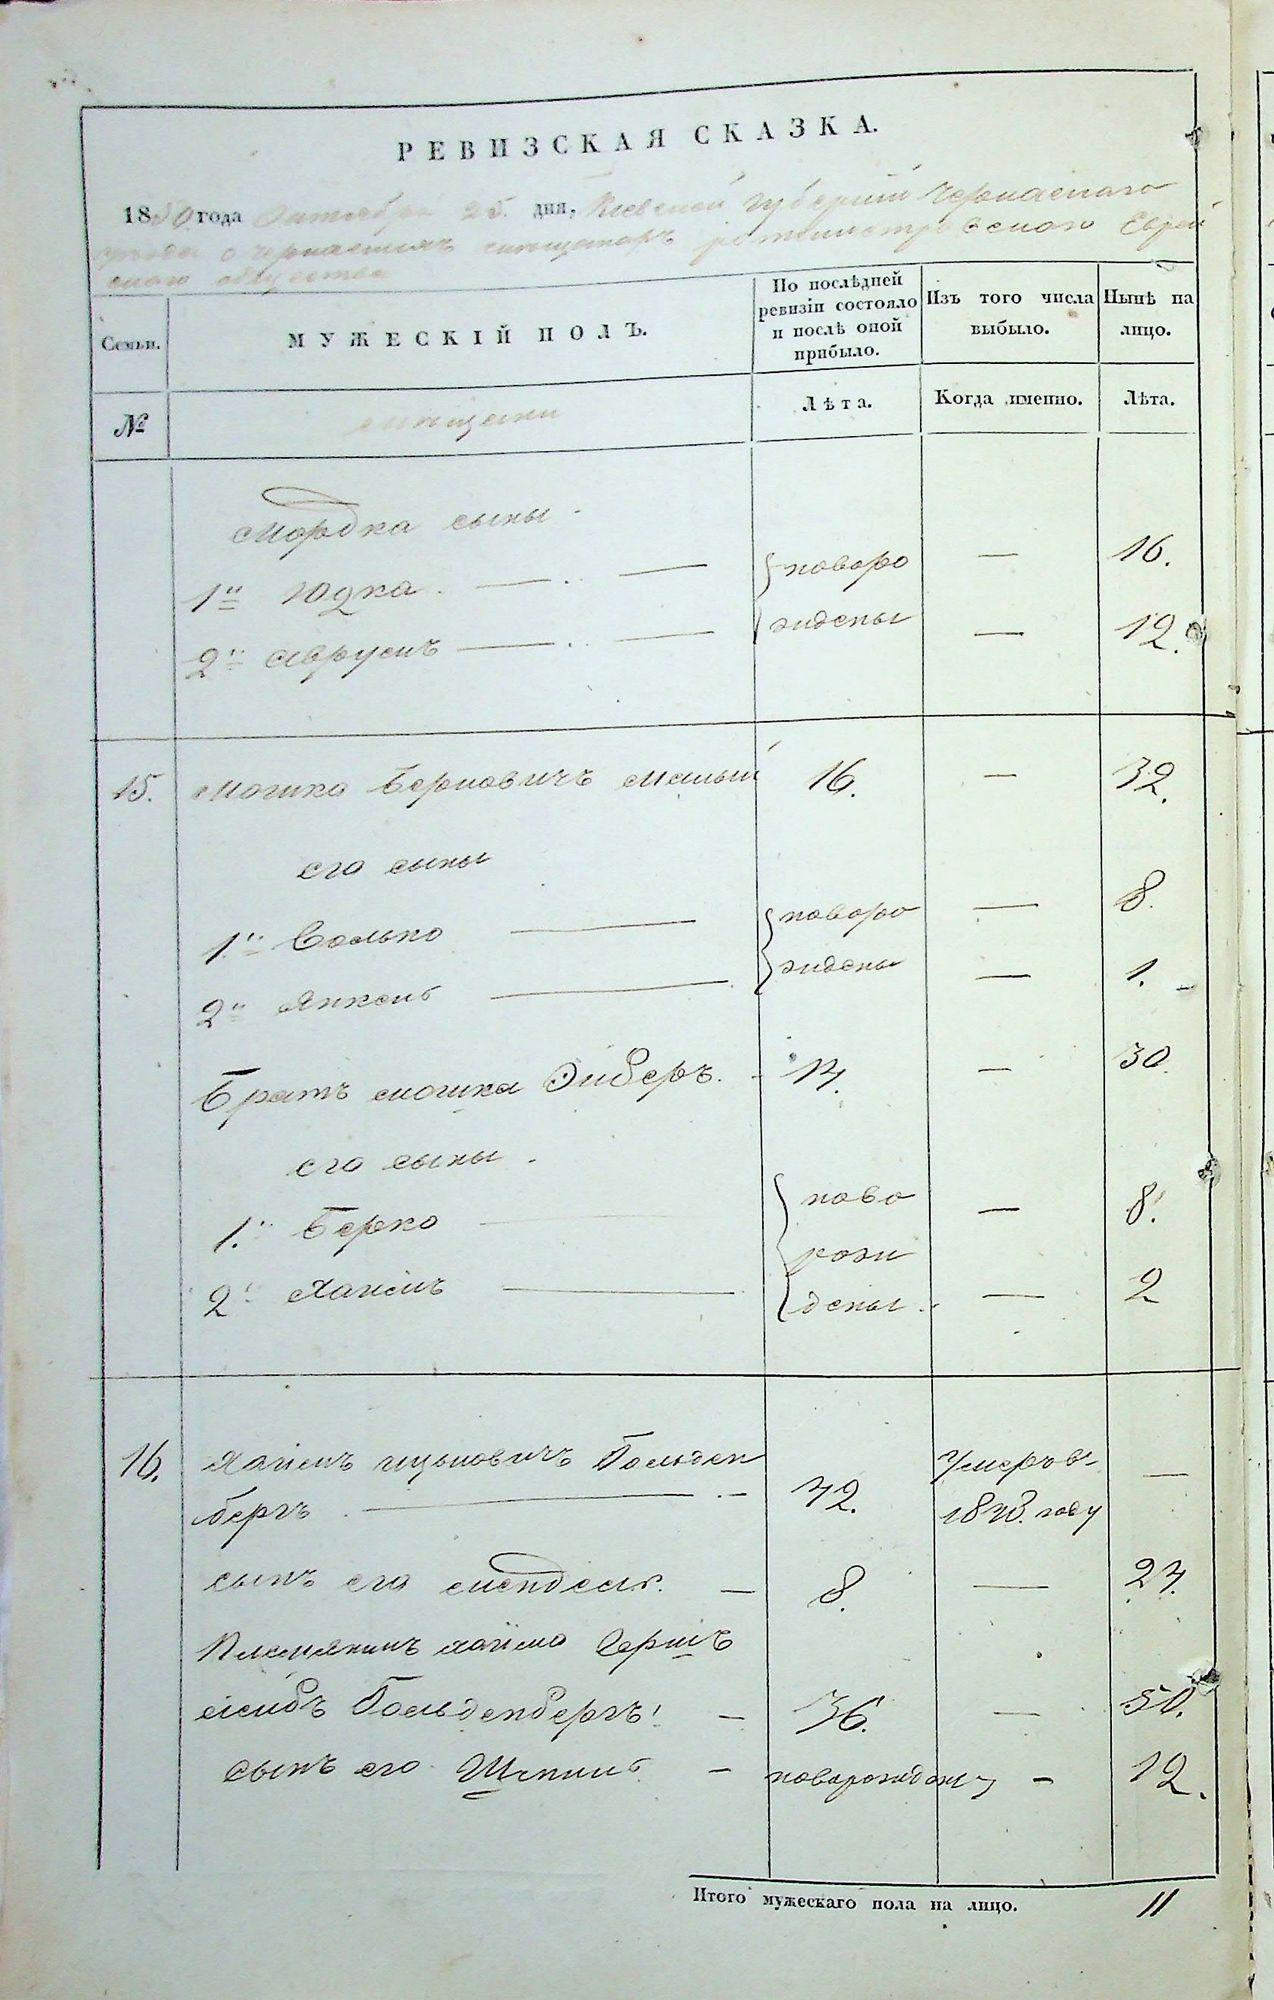 РЕВИЗСКАЯ СКАЗКА.
1850 года Октября 25 дня, Кіевской Губерніи Черкаскаго
уезда о черкаскихъ мещанахъ ротмистровскаго Еврей
скаго общества
Семьи.
МУЖЕСКІЙ ПОЛЪ.
По послѣдней ревизіи состояло и послѣ оной прибыло.
Изъ того числа выбыло.
Нынѣ на лицо.
№
мещане
Лѣта.
Когда именно.
Лѣта.
Мордка сыны
1й Юдка. новоро — 16.
2й Аврумъ ждены — 12.
15. Мошко Берковичъ Малый 16. — 32.
его сыны
1й Волько новоро — 8.
2й Янкель ждены — 1.
Братъ мошка Эйберъ. 14. — 30.
его сыны
1й Берко ново — 8.
рож
2й Хаимъ дены — 2
16. Хаимъ ицковичъ Гольден Умеръ въ —
бергъ 42. 1848. году
сынъ его мендель. 8. — 24.
Племянникъ хаима Герш
Гольденбергъ 36. — 50.
сынъ его новорожденъ — 12.
Итого мужескаго пола на лицо. 11